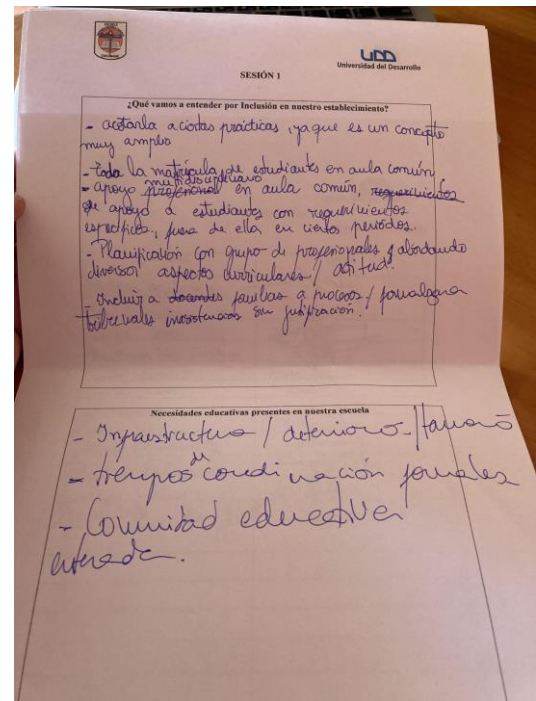 UDD
Universidad del Desarrollo
SESIÓN 1
¿Qué vamos a entender por Inclusión en nuestro establecimiento?
- acotarla a ciertas prácticas, ya que es un concepto
muy amplio
- toda la matrícula de estudiantes en aula común
multidisciplinario
- apoyo profesional en aula común, requerimientos
de apoyo a estudiantes con requerimientos
específicos, fuera de ella en ciertos periodos.
- Planificación con grupo de profesionales abordando
diversos aspectos curriculares / actitud.
- Incluir a docentes familias a procesos /
inasistencias sin justificación.
Necesidades educativas presentes en nuestra escuela
- Infraestructura / deterioro - / tamaño
de
- tiempos coordinación formales
- Comunidad educativa